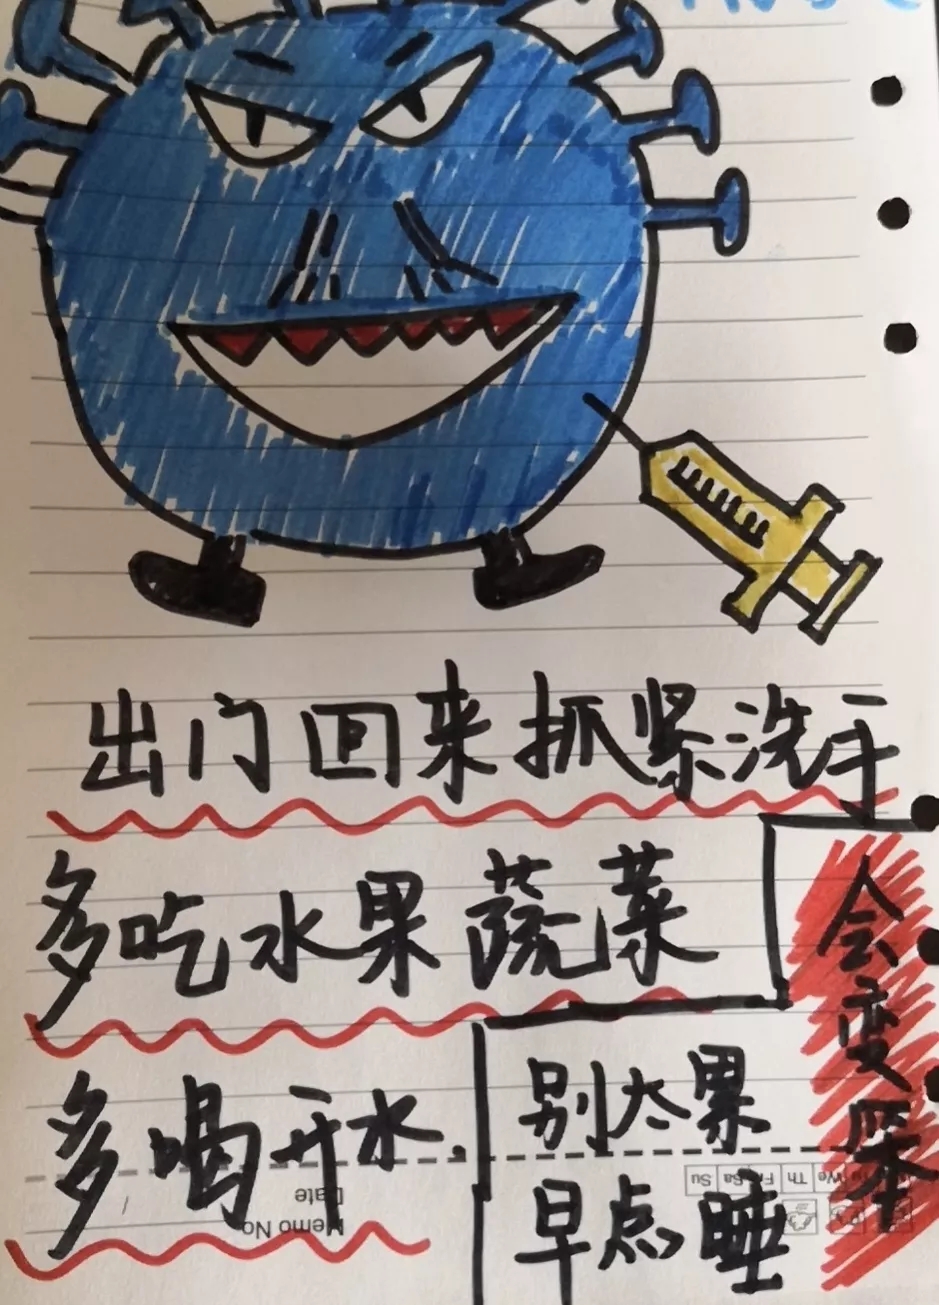 出门回来抓紧洗手
多吃水果蔬菜
多喝开水.
别太累
早点睡
会变
Memo No.
Date
We Th Fr Sa Su